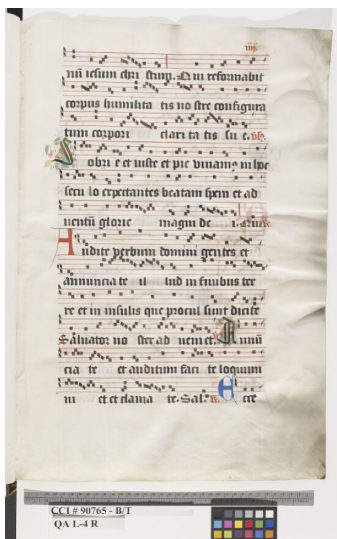 iiij.
nũ iesum chri stum. Qui reformabit
corpus humilita tis no stre configura
tum corpori clari ta tis su e. ℣.
Sobri e et iuste et pie viuam9 in hoc
secu lo expectantes beatam spem et ad
uentũ glorie magni de i.
Audite verbum domini gentes et
annuncia te il lud in finibus ter
re et in insulis que procul sunt dicite
Saluator no ster ad ueni et. ℣. Annũ
cia te et auditum faci te loquimi
ni et clama te. Sal. ℟. Ecce
CCI # 90765 - B/T
QA L-4 R